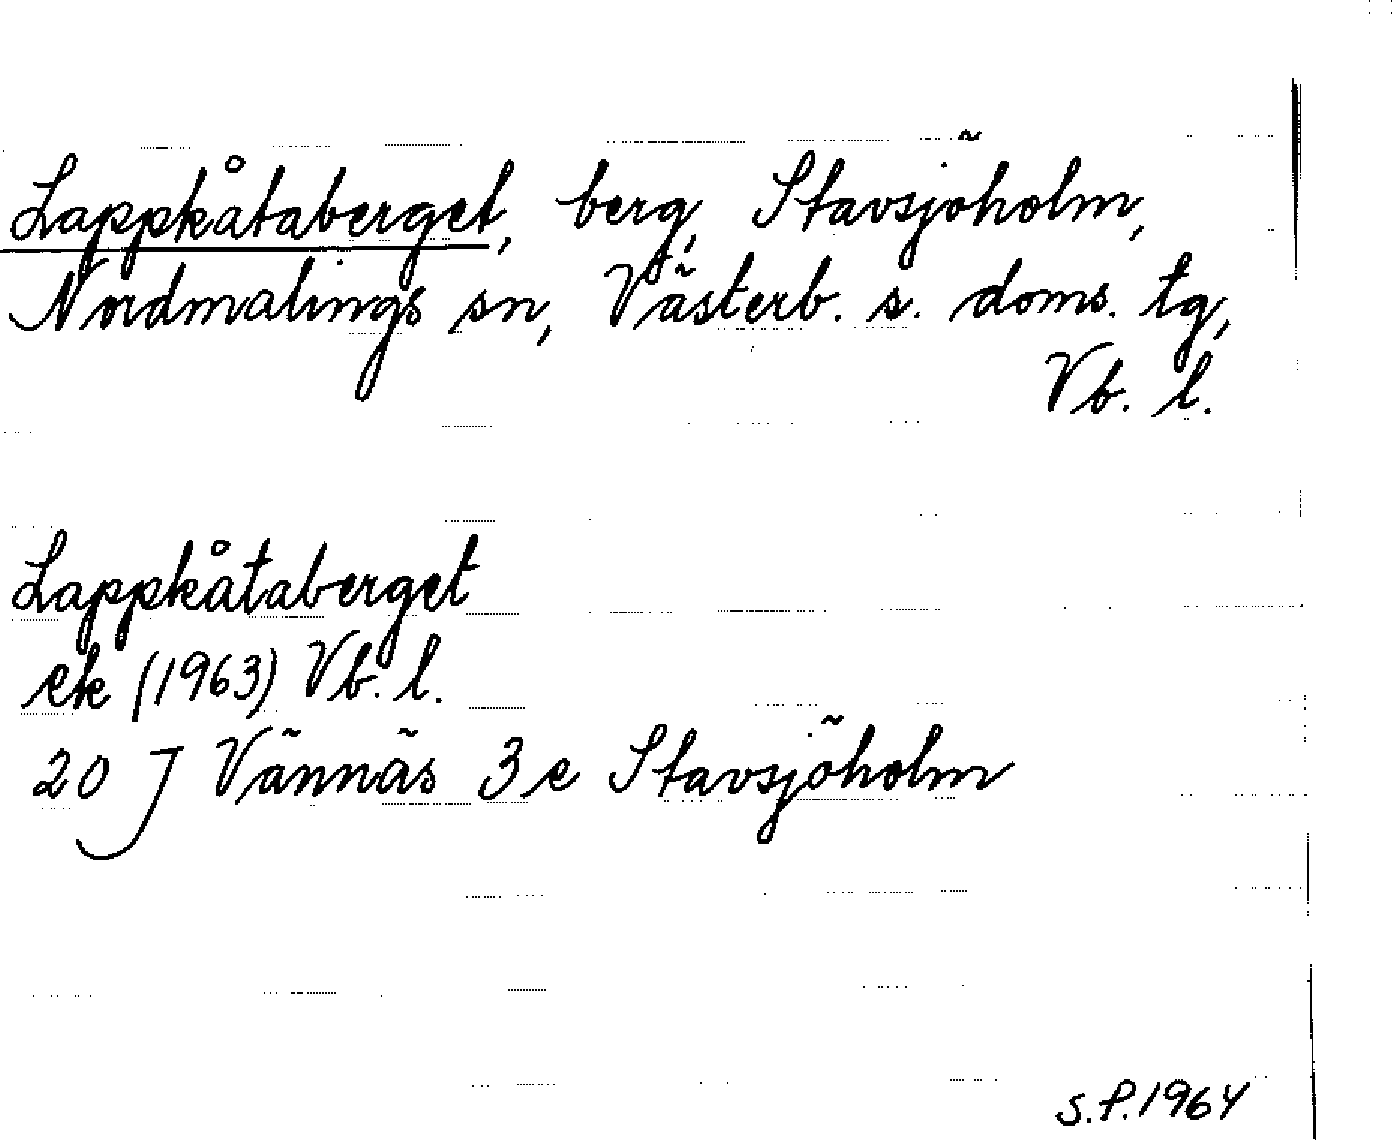 Lappkåtaberget, berg, Stavsjöholm,
Nordmalings sn, Västerb. s. doms. tg,
Vb. l.
Lappkåtaberget
ek (1963) Vb. l.
20 J Vännäs 3 e Stavsjöholm
S.P. 1964